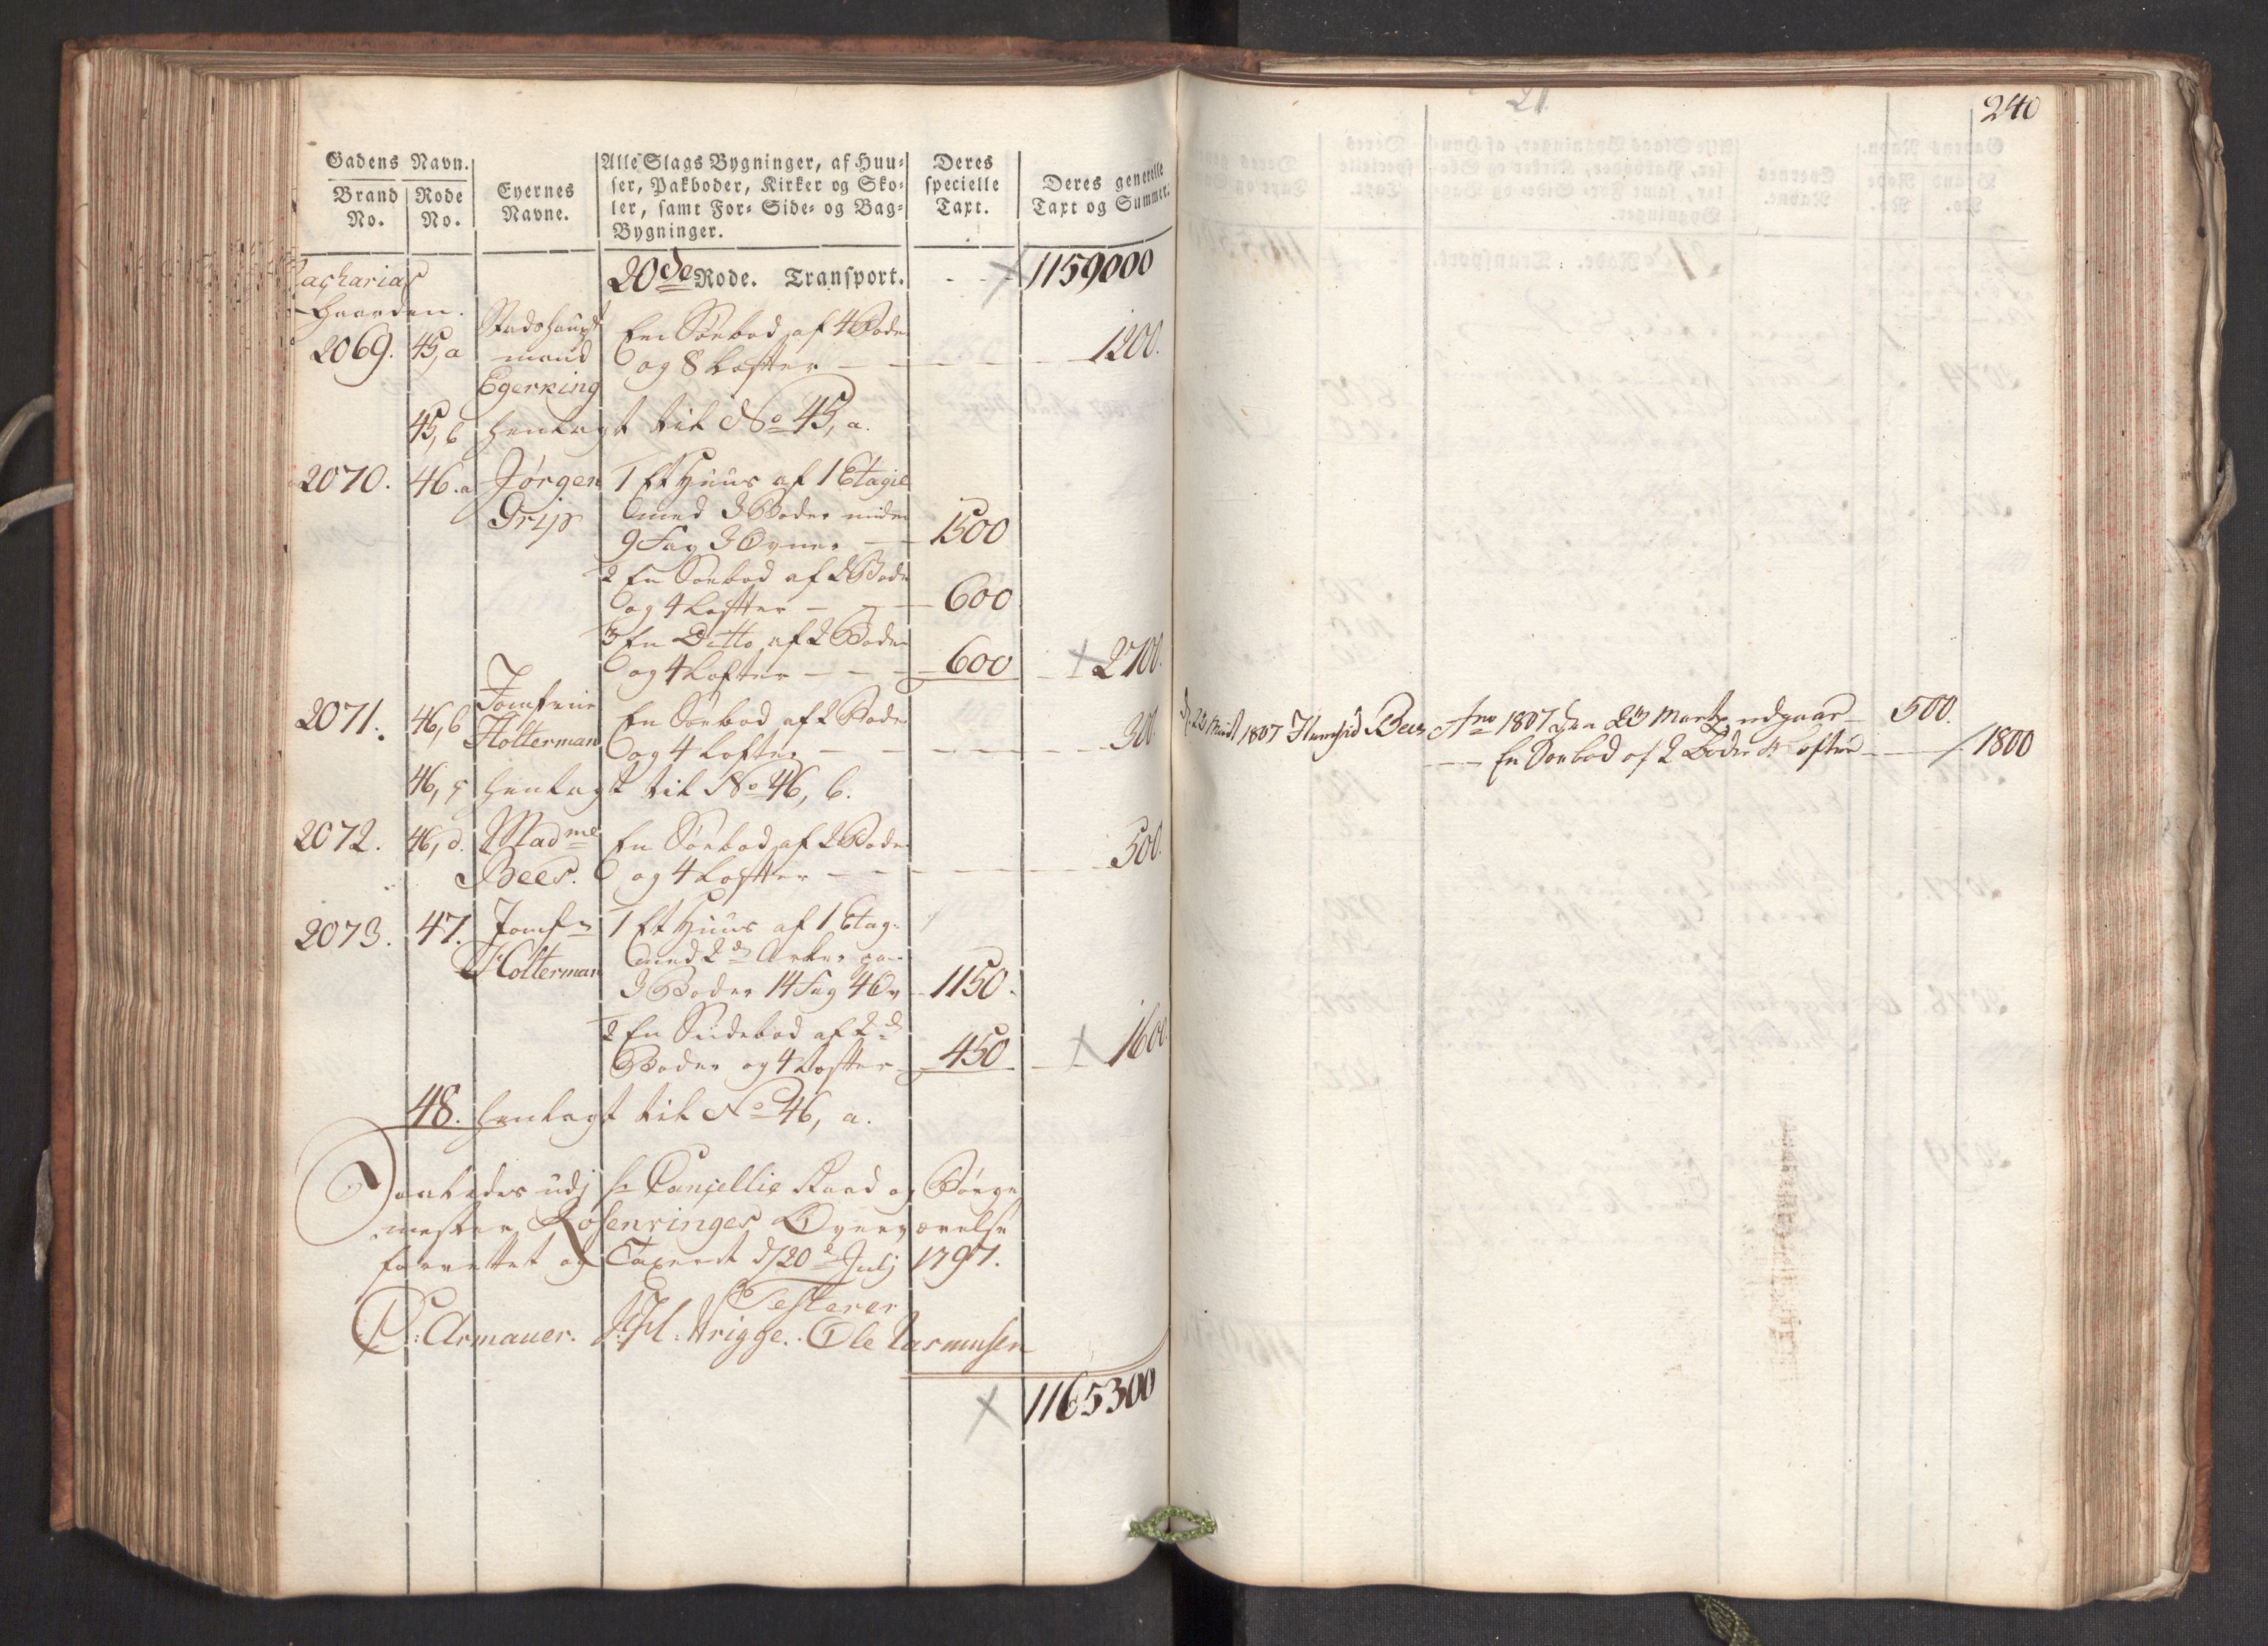 Gadens Navn.
Brand No.
Rode No.
Eyernes Navne.
Alle Slags Bygninger, af Huu-
ser, Pakboder, Kirker og Sko-
ler, samt For- Side- og Bag-
Bygninger.
Deres specielle Taxt.
Deres generelle Taxt og Summer.
20de Rode. Transport. 1159000
Zacharias
Gaarden.
2069. 45, a Stadshaupt En Søebod af 4 Boder
mand og 8 Lofter 1200.
Egerking
45, b henlagt til No 45, a.
2070. 46. a Jørgen 1 Et Huus af 1 Etagie
Grip med 3 Boder
9 Fag 3 Ovner 1500
2 En Søebod af 2 Boder
og 4 Lofter 600
3 En Ditto af 2 Boder
og 4 Lofter 600 2700.
Jomfrue
2071. 46, b Holterman En Søebod af 2 Boder
og 4 Lofter 300.
46, c henlagt til No 46, b.
2072. 46, d. Madme En Søebod af 2 Boder
Beer. og 4 Lofter 500.
2073. 47. Jomfr 1 Et Huus af 1 Etag:
Holterman med 2de Arker
3 Boder 14 Fag 4 Ov 1150.
2 En Siidebod af 2de
Boder og 4 Lofter 450 1600.
48. henlagt til No 46, a.
Saaledes udj Hr Cancellie Raad og Borge
mester Rosenvinges Overværelse
forrettet og Taxeret d/20de Julj 1797.
Testerer
P: Armauer. Wrigge. Ole Rasmusen
1165300
240
21
1807 Beer Ano 1807 den 23 Marty udgaar 500.
En Søebod af 2 Boder 4 Lofter 1800